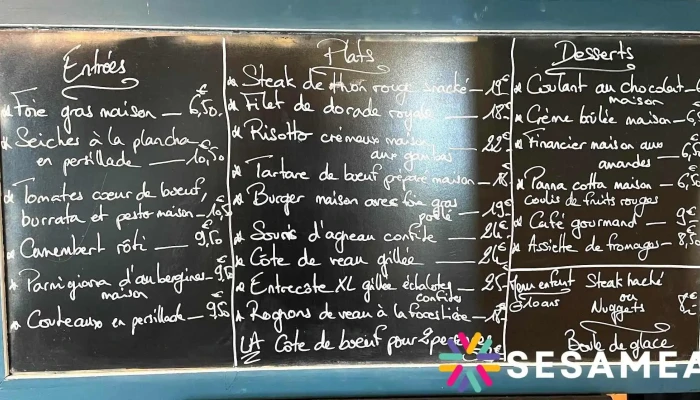 Entrées
Foie gras maison — 6,50€
Seiches à la plancha
en persillade — 10,50
Tomates coeur de boeuf,
burrata et pesto maison — 10,50
Camembert rôti — 9,50€
Parmigiana d'aubergines — 9,50
maison
Couteaux en persillade — 9,50€
Plats
Steak de thon rouge snacké — 19€
Filet de dorade royale — 18€
Risotto crémeux maison — 22€
aux gambas
Tartare de boeuf préparé maison — 18€
Burger maison avec foie gras
poêlé — 19€
Souris d'agneau confite — 24€
Côte de veau grillée — 24€
Entrecôte XL grillée échalotes — 25
confites
Rognons de veau à la forestière — 18€
LA Côte de boeuf pour 2 pers
Desserts
Coulant au chocolat
maison
Crème brûlée maison
Financier maison aux
amandes
Panna cotta maison
coulis de fruits rouges
Café gourmand — 9€
Assiette de fromages — 8,50
Menu enfant Steak haché
ou
Nuggets 8€
Boule de glace
SESAMEA